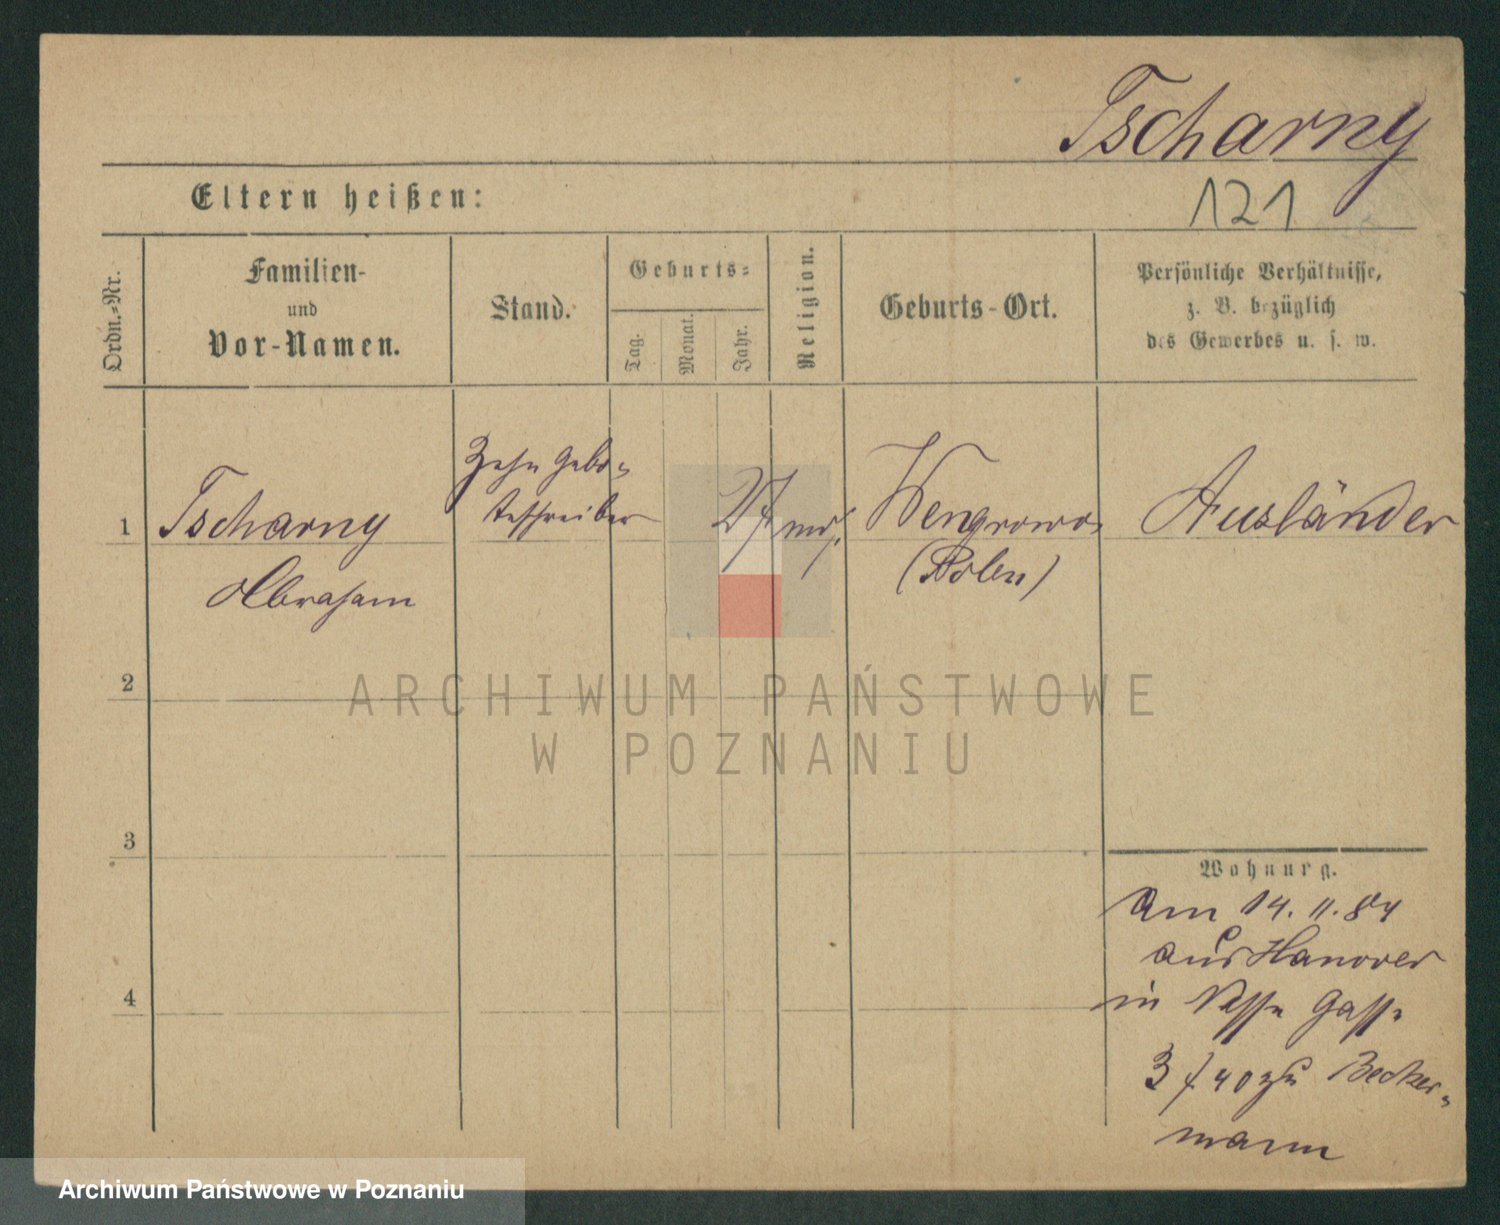 Tscharny
Eltern heißen:
121
Ordn.-Nr.
Familien-
und
Vor-Namen.
Stand.
Geburts-
Tag.
Monat.
Jahr.
Religion.
Geburts-Ort.
Persönliche Verhältnisse,
z. B. bezüglich
des Gewerbes u. s. w.
1
Tscharny
Abraham
Zehn Gebo-
teschreiber
27
mos.
Wengrowo
(Polen)
Ausländer
2
3
4
ARCHIWUM PAŃSTWOWE
W POZNANIU
Wohnung.
Am 14. 11. 84
aus Hanover
in Nasse Gasse
3 f 40 zu Becker-
mann
Archiwum Państwowe w Poznaniu